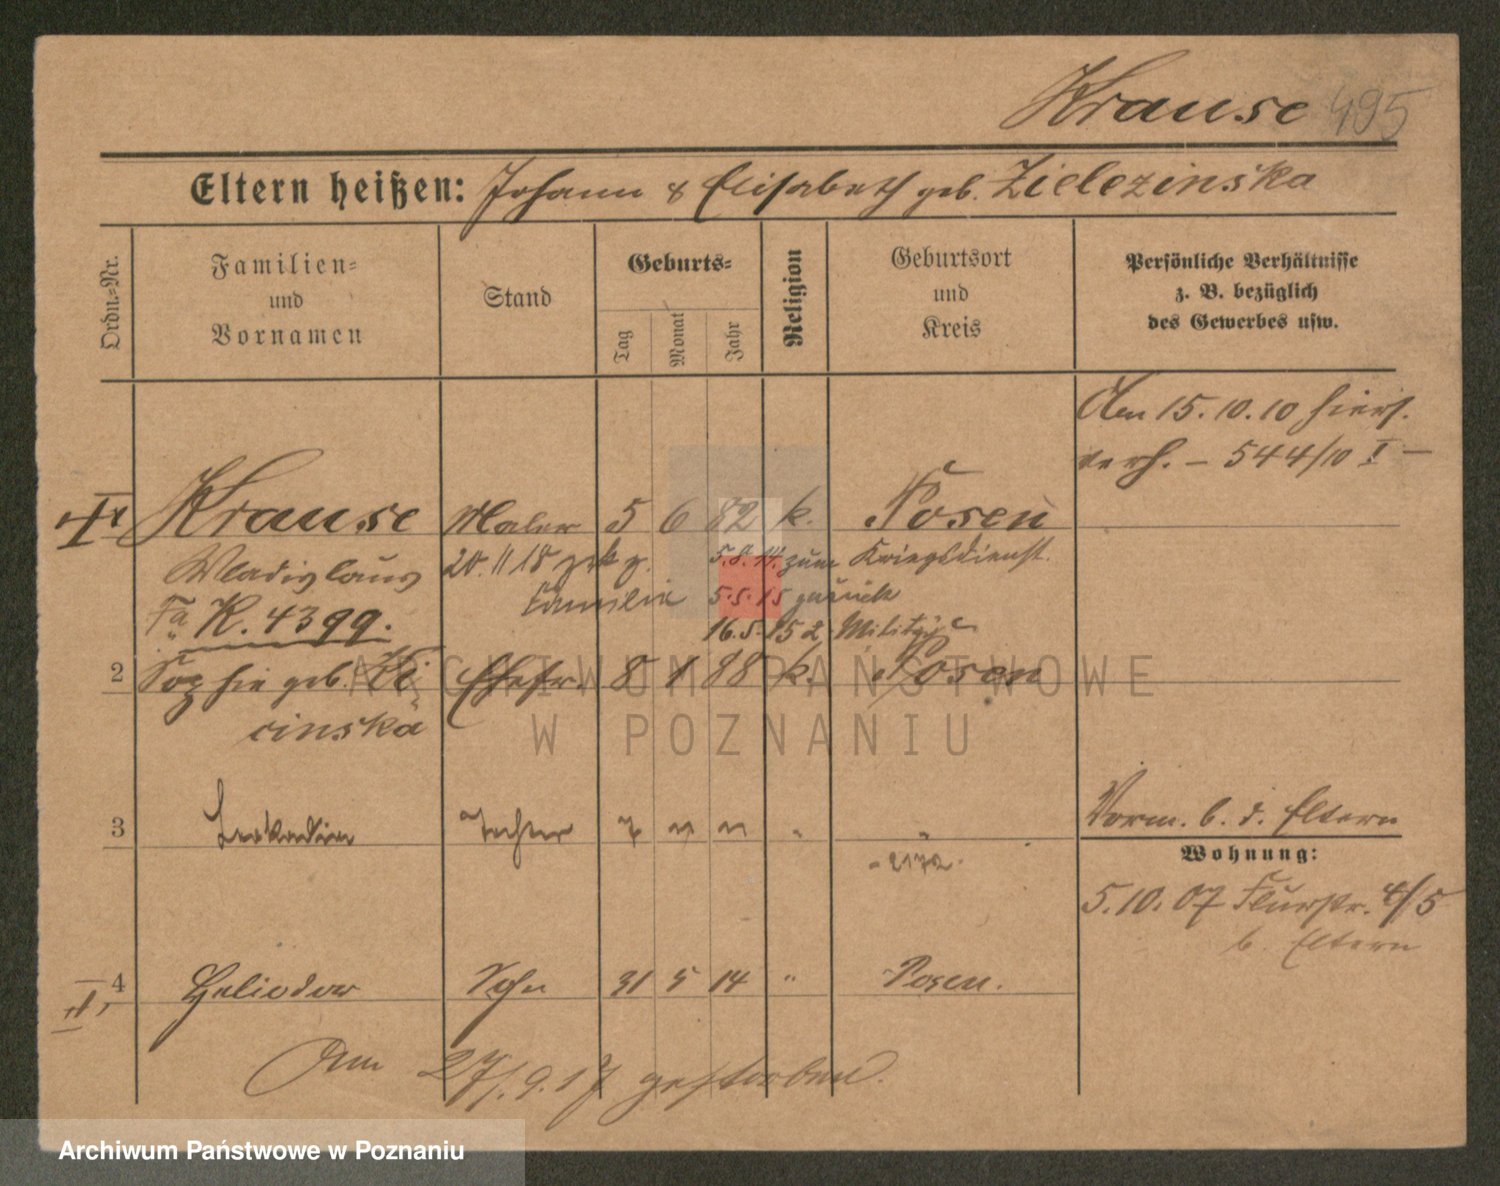 Krause 495
Eltern heißen: Johann & Elisabeth geb. Zielezinska
Ordn.-Nr.
Familien-
und
Vornamen
Stand
Geburts-
Tag
Monat
Jahr
Religion
Geburtsort
und
Kreis
Persönliche Verhältnisse
z. B. bezüglich
des Gewerbes usw.
Am 15.10.10 hiers.
verh. – 544/10 I –
Krause Maler 5 6 82 k. Posen
Wladislaus 20.11 18 zrk z. 5.8.14. zum Kriegsdienst.
Fa K. 4399. Familie 5.5.15 zurück
16.5.15 z. Militär
2 Sophie geb. Ki Ehefr. 8 1 88 k. Posen
cinska
3 Leokadia Tochter 7 " "
Vorm. b. d. Eltern
Wohnung:
5.10.07 Flurstr. 4/5
b. Eltern
4 Heliodor Sohn 31 5 14 " Posen.
Am 27/.9.17 gestorben.
ARCHIWUM PAŃSTWOWE
W POZNANIU
Archiwum Państwowe w Poznaniu